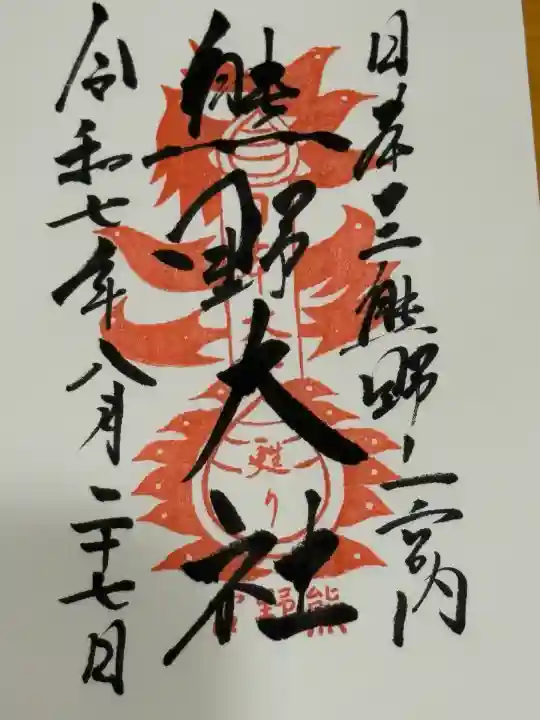 日本三熊野ノ一宮内
熊野大社
令和七年八月二十七日
甦り
熊野宮